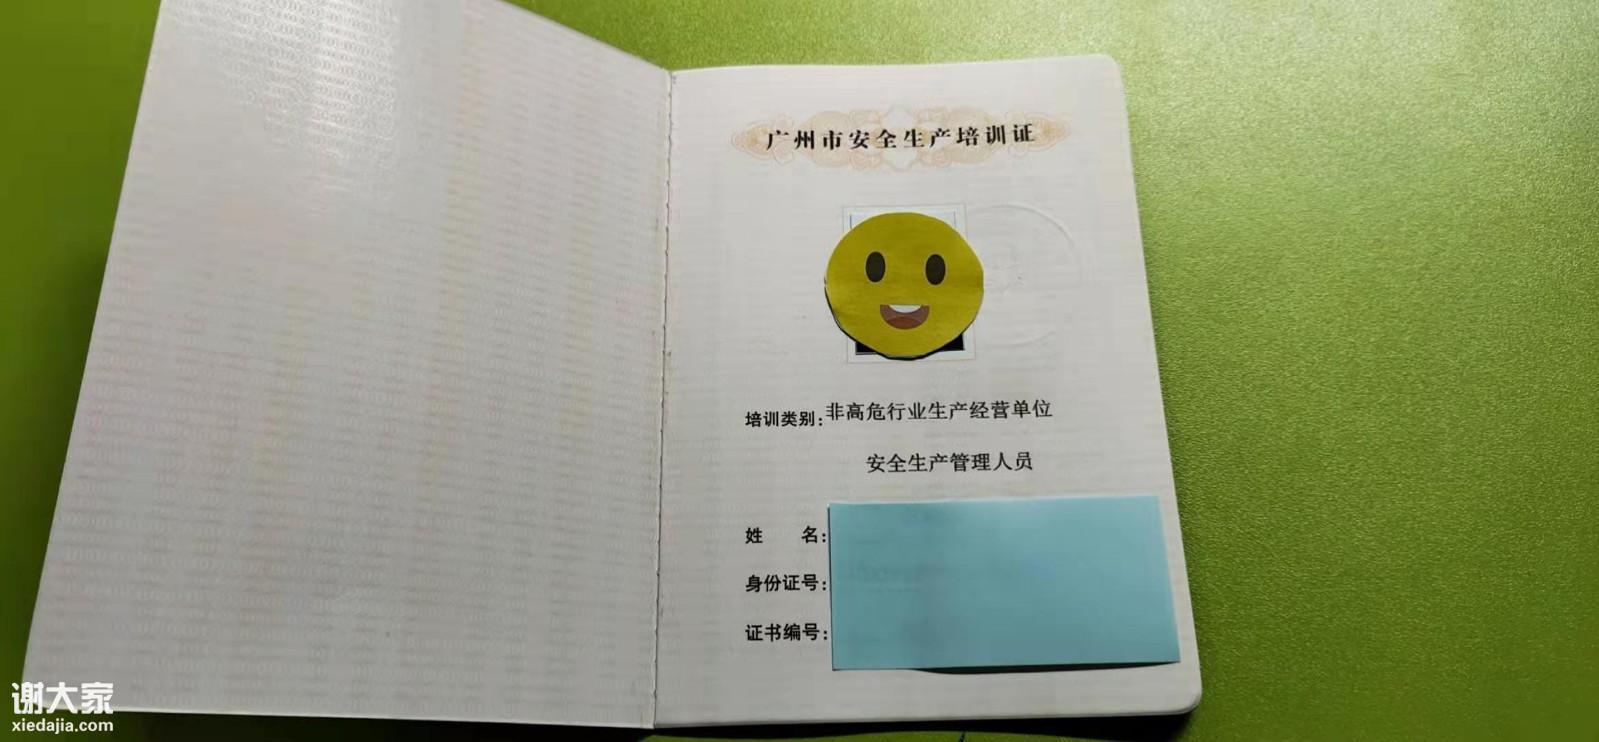 广州市安全生产培训证
培训类别:非高危行业生产经营单位
安全生产管理人员
姓 名:
身份证号:
证书编号:
谢大家
xiedajia.com